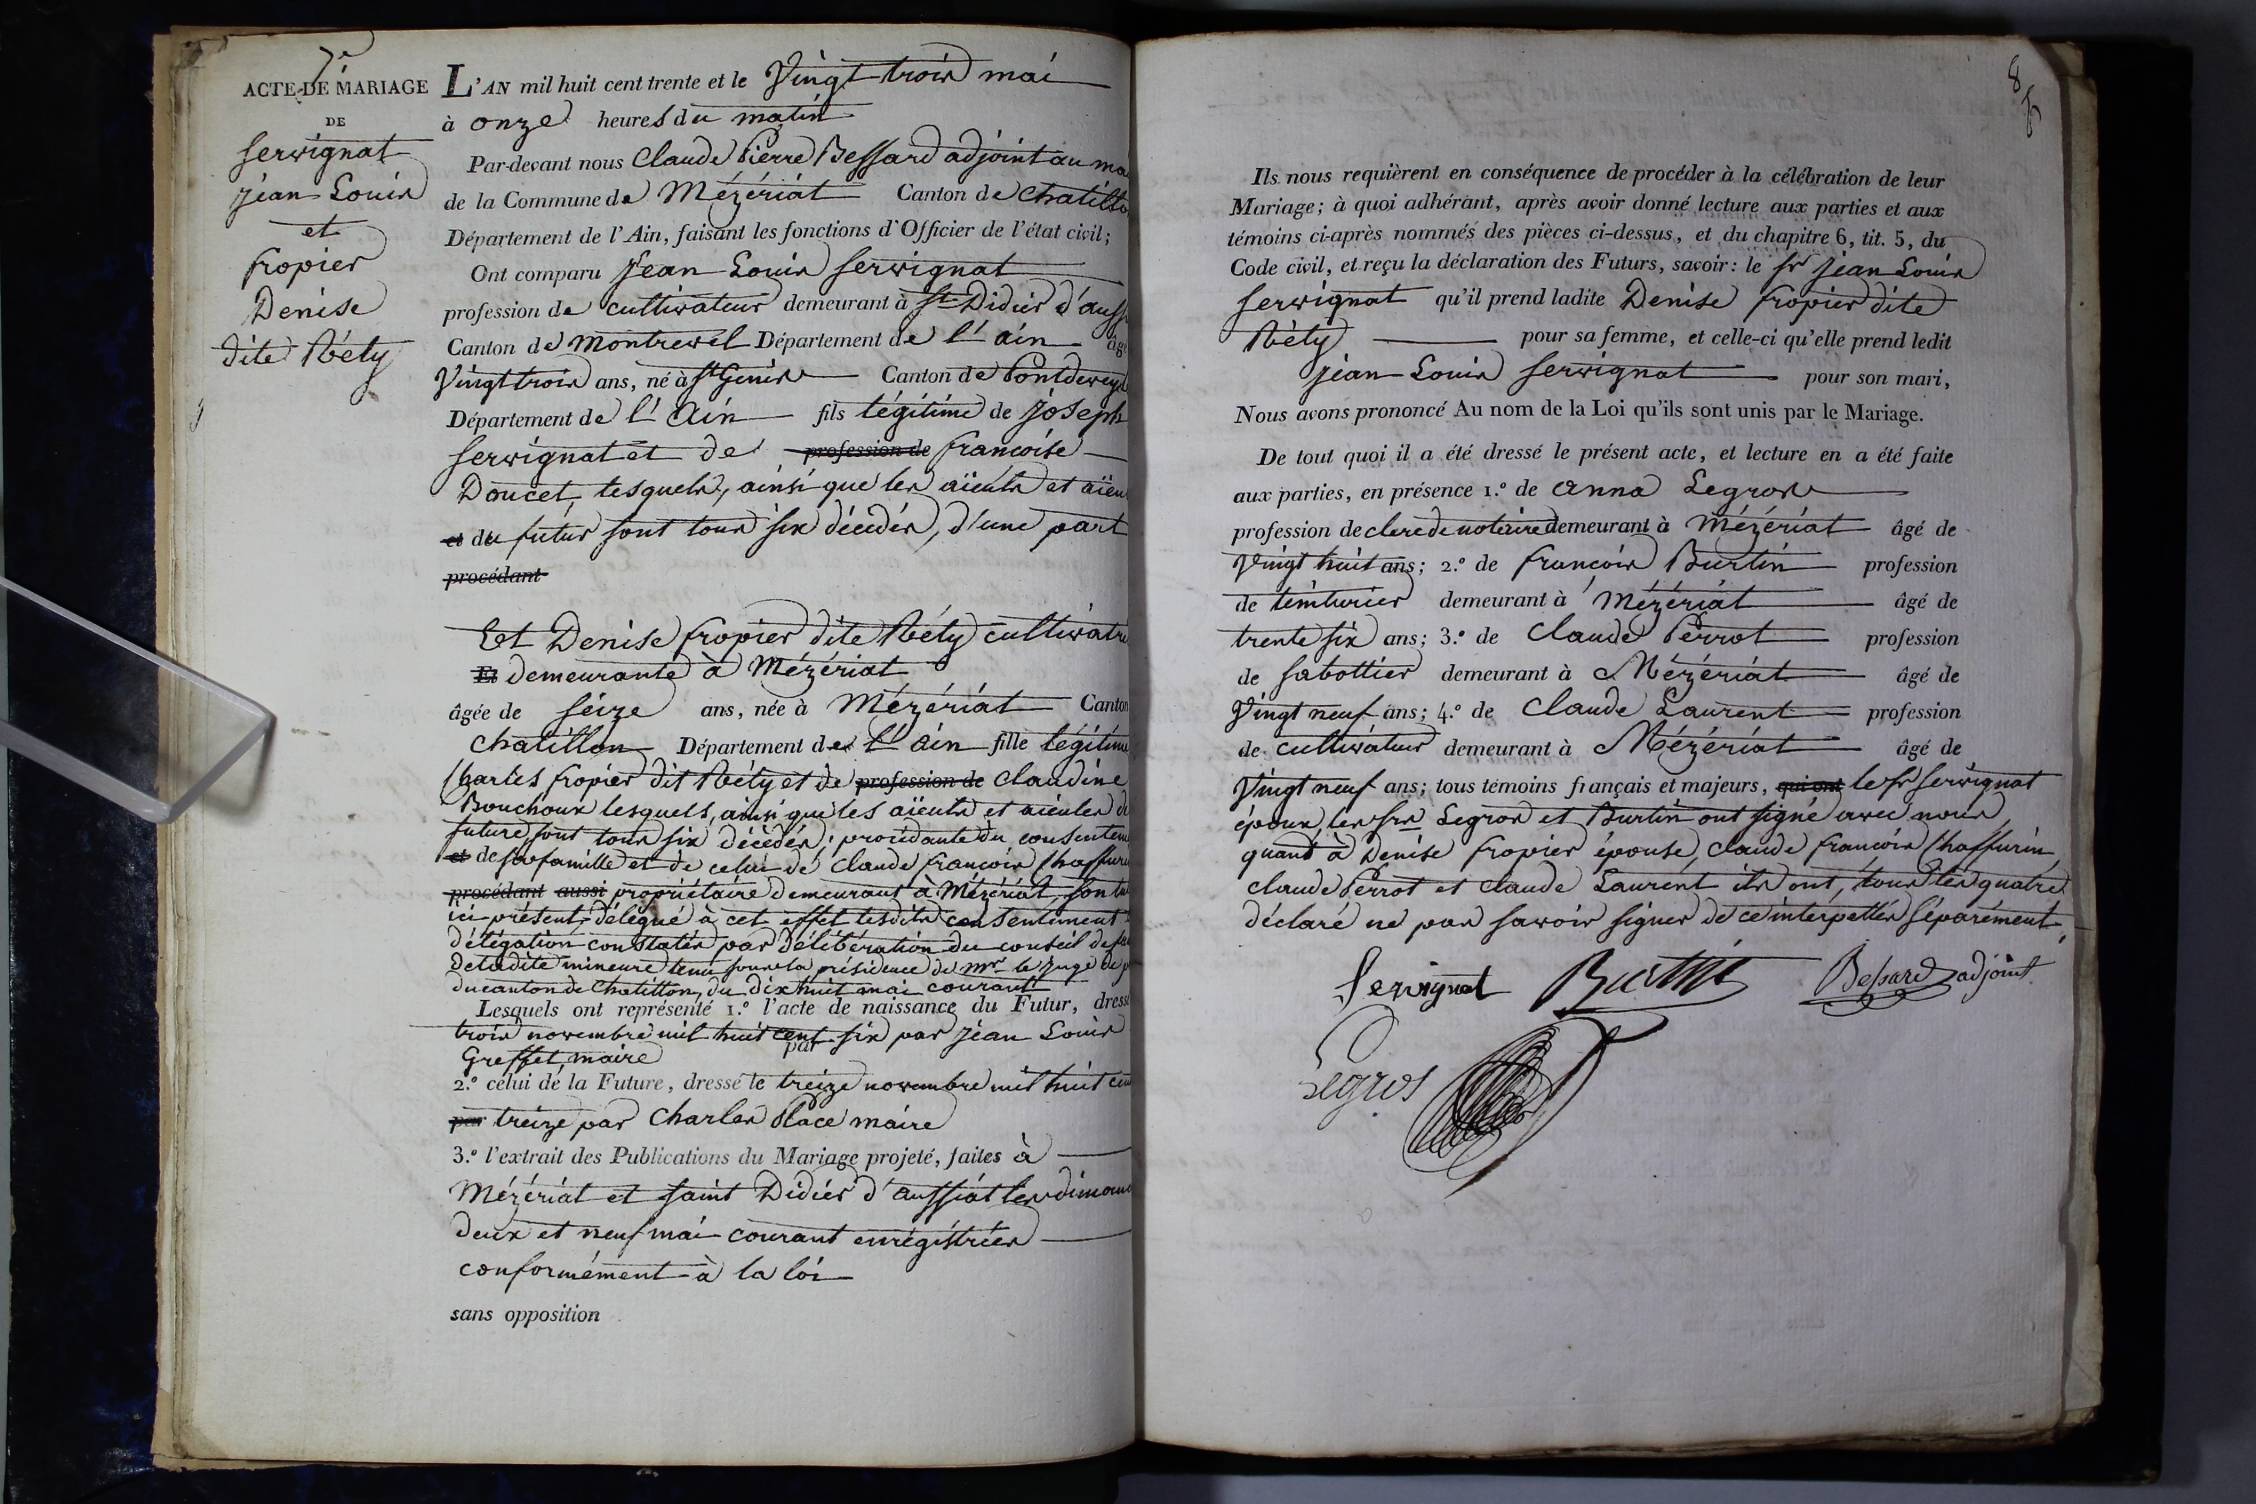 7e
ACTE DE MARIAGE
DE
Servignat
jean Louis
et
fropier
Denise
dite Réty
L'AN mil huit cent trente et le Vingt trois mai
à onze heures du matin
Par-devant nous Claude Pierre Bessard adjoint au ma
de la Commune de Mézériat Canton de chatillo
Département de l'Ain, faisant les fonctions d'Officier de l'état civil;
Ont comparu Jean Louis Servignat
profession de cultivateur demeurant à St Didier d'auss
Canton de montrevel Département de l'ain âgé
Vingt trois ans, né à St Genis Canton de Pontdeveyl
Département de l'Ain fils légitime de joseph
Servignat et de profession de francoise
Doucet, lesquels, ainsi que les aïeuls et aïeu
et du futur sont tous six décédés, d'une part
procédant
Et Denise fropier dite Réty cultivatri
Et demeurante à Mézériat
âgée de seize ans, née à Mézériat Canton
chatillon Département de l'ain fille légitime
Charles fropier dit Réty et de profession de claudine
Bouchoux lesquels, ainsi que les aïeuls et aïeules de
future sont tous six décédés; procédante du consenteme
et de sa famille et de celui de Claude francois Chaffurin
procédant aussi propriétaire demeurant à Mézériat, son tu
ici présent, délégué à cet effet lesdits consentement
délégation constatés par délibération du conseil de fa
de ladite mineure tenu sous la présidence de mr le juge de p
du canton de Chatillon, du dix huit mai courant
Lesquels ont représenté 1.° l'acte de naissance du Futur, dressé
trois novembre mil huit cent six par jean Louis
par
Greffet, maire
2.° celui de la Future, dressé le treize novembre mil huit cen
par treize par Charles Place maire
3.° l'extrait des Publications du Mariage projeté, faites à
Mézériat et Saint Didier d'aussiat les dimanc
deux et neuf mai courant enrégistrées
conformément à la loi
sans opposition
8
Ils nous requièrent en conséquence de procéder à la célébration de leur
Mariage; à quoi adhérant, après avoir donné lecture aux parties et aux
témoins ci-après nommés des pièces ci-dessus, et du chapitre 6, tit. 5, du
Code civil, et reçu la déclaration des Futurs, savoir: le sr jean Louis
Servignat qu'il prend ladite Denise fropier dite
Réty pour sa femme, et celle-ci qu'elle prend ledit
jean Louis Servignat pour son mari,
Nous avons prononcé Au nom de la Loi qu'ils sont unis par le Mariage.
De tout quoi il a été dressé le présent acte, et lecture en a été faite
aux parties, en présence 1.° de anna Legros
profession de clerc de notaire demeurant à Mézériat âgé de
Vingt huit ans; 2.° de francois Burtin profession
de teinturier demeurant à Mézériat âgé de
trente six ans; 3.° de Claude Perrot profession
de sabottier demeurant à Mézériat âgé de
Vingt neuf ans; 4.° de Claude Laurent profession
de cultivateur demeurant à Mézériat âgé de
Vingt neuf ans; tous témoins français et majeurs, qui ont le sr Servignat
époux, les srs Legros et Burtin ont signé avec nous,
quant à Denise fropier épouse, Claude francois Chaffurin
claude Perrot et claude Laurent ils ont, tous les quatre
déclaré ne pas savoir signer de ce interpellés séparément.
Servignat Burtin Bessard adjoint
Legros